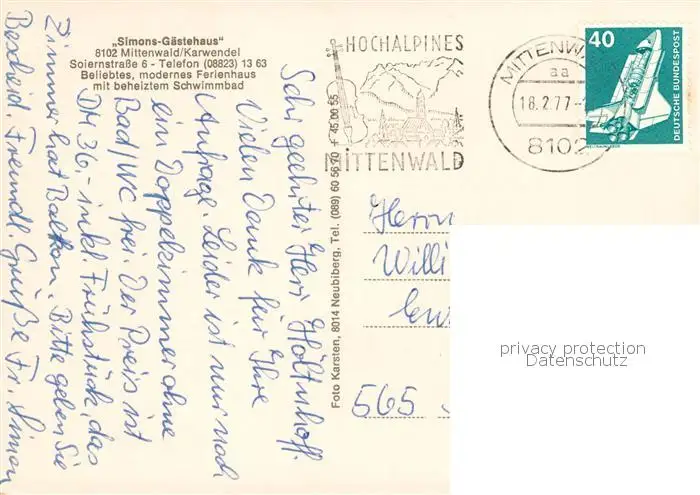 „Simons-Gästehaus"
8102 Mittenwald/Karwendel
Soiernstraße 6 - Telefon (08823) 13 63
Beliebtes, modernes Ferienhaus
mit beheiztem Schwimmbad
Sehr geehrter Herr Holtenhoff.
Vielen Dank für Ihre
Anfrage. Leider ist nur noch
ein Doppelzimmer ohne
Bad/WC frei. Der Preis ist
DM 36,- inkl. Frühstück, das
Zimmer hat Balkon. Bitte geben Sie
Bescheid. Freundl. Grüße Fr. Simon
Foto Karsten, 8014 Neubiberg, Tel. (089) 60 56 70 + 45 00 55
HOCHALPINES
MITTENWALD
MITTENWA
aa
18.2.77-
8102
40
DEUTSCHE BUNDESPOST
WELTRAUMLABOR
Herrn
Willi
565
privacy protection
Datenschutz